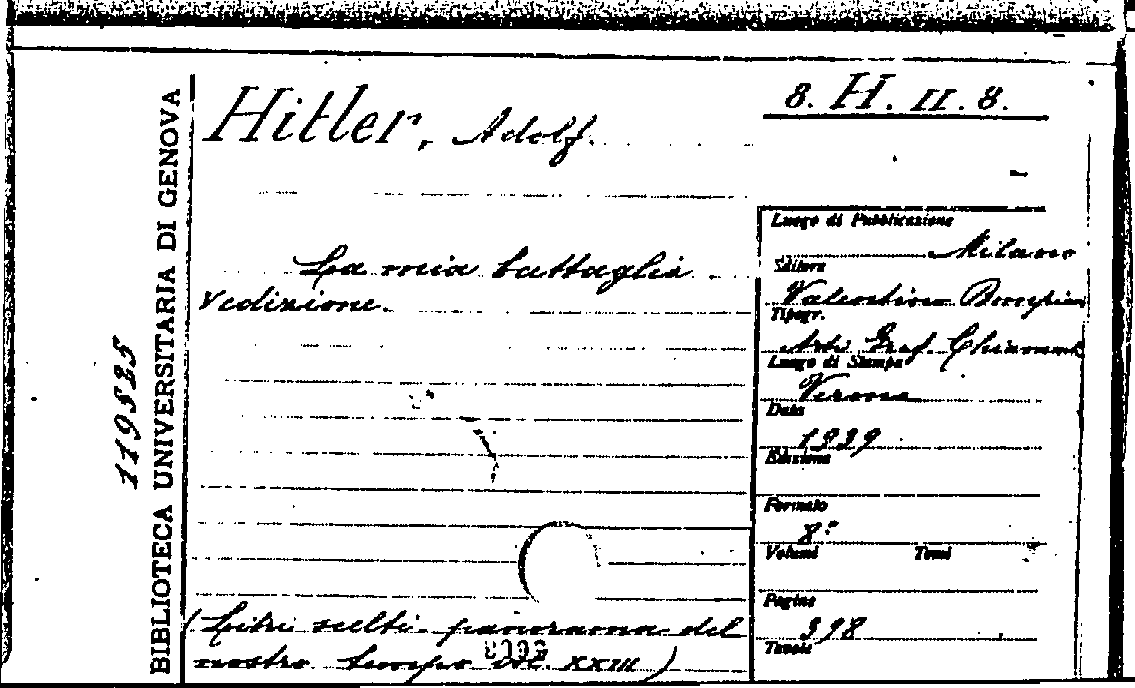 8. H. II. 8.
Hitler, Adolf.
La mia battaglia
V edizione.
(Libri scelti panorama del
nostro tempo vol. XXIII)
Luogo di Pubblicazione
Milano
Editore
Valentino
Tipogr.
Arti Graf.
Luogo di Stampa
Verona
Data
1939
Edizione
Formato
8°
Volumi Tomi
Pagine
398
Tavole
BIBLIOTECA UNIVERSITARIA DI GENOVA
119525